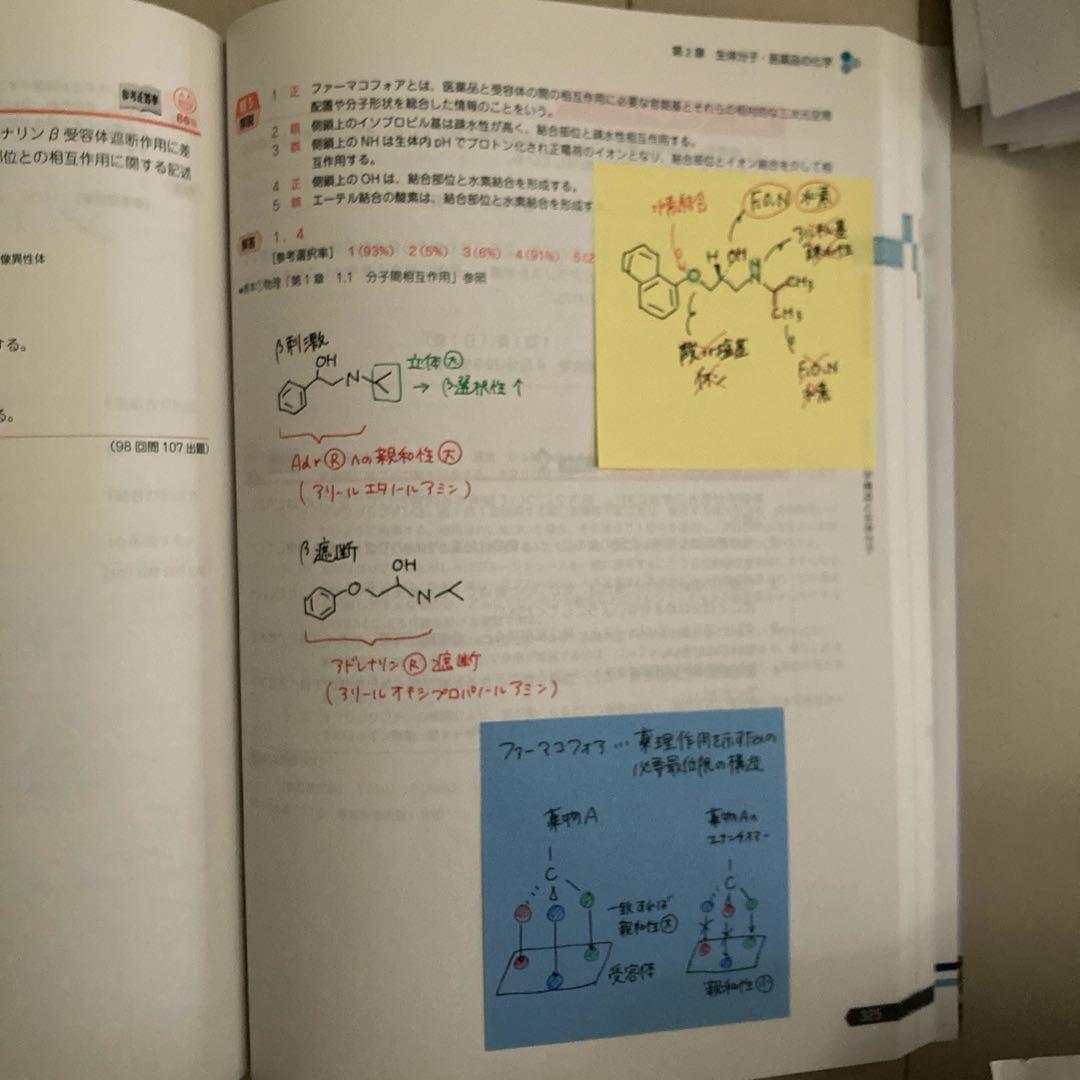 第2章 生体分子・医薬品の化学
参考正答率
86%
ナリンβ受容体遮断作用に差
部位との相互作用に関する記述
像異性体
する。
る。
(98回問107出題)
解説
1 正 ファーマコフォアとは、医薬品と受容体の間の相互作用に必要な官能基とそれらの相対的な三次元空間
配置や分子形状を総合した情報のことをいう。
2 誤 側鎖上のイソプロピル基は疎水性が高く、結合部位と疎水性相互作用する。
3 誤 側鎖上のNHは生体内pHでプロトン化され正電荷のイオンとなり、結合部位とイオン結合を介して相
互作用する。
4 正 側鎖上のOHは、結合部位と水素結合を形成する。
5 誤 エーテル結合の酸素は、結合部位と水素結合を形成す
解答 1、4
[参考選択率] 1(93%) 2(5%) 3(6%) 4(91%) 5(2
物理「第1章 1.1 分子間相互作用」参照
水素結合
F.O.N 水素
H OH
O
N
CH₃
CH₃
酸or塩基
イオン
F.O.N
水素
β刺激
OH
N
立体大
→ β選択性↑
Adr Rへの親和性 大
(アリールエタノールアミン)
β遮断
OH
O
N
アドレナリン R 遮断
(アリールオキシプロパノールアミン)
ファーマコフォア… 薬理作用を示すための
必要最低限の構造
薬物A
薬物Aの
エナンチオマー
C
C
一致すれば
親和性 大
受容体
親和性 小
325